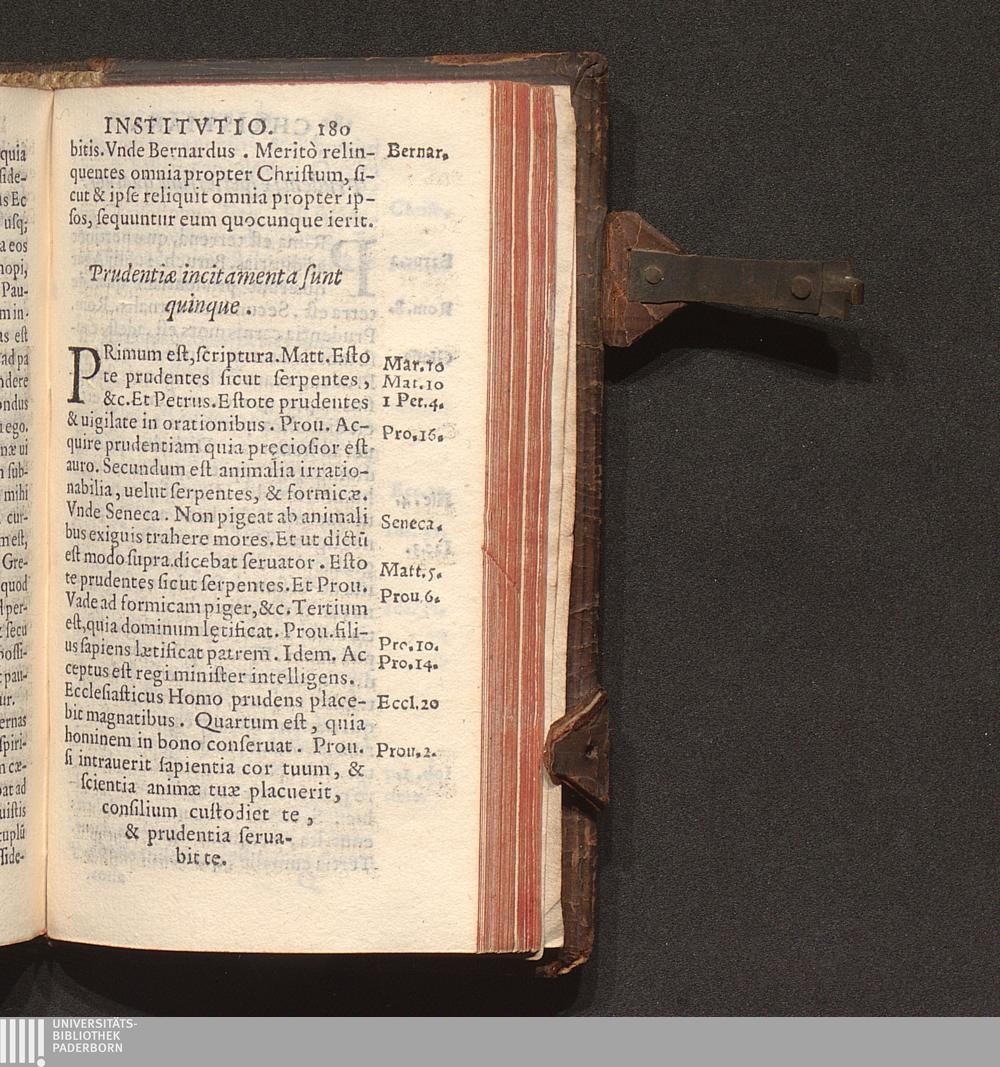 INSTITVTIO. 180
bitis. Vnde Bernardus . Meritò relin- Bernar.
quentes omnia propter Christum, si-
cut & ipse reliquit omnia propter ip-
sos, sequuntur eum quocunque ierit.
Prudentiæ incitamenta sunt
quinque .
PRimum est, scriptura. Matt. Esto Mar.10
te prudentes sicut serpentes, Mat.10
&c. Et Petrus. Estote prudentes 1 Pet.4.
& uigilate in orationibus . Prou. Ac- Pro.16.
quire prudentiam quia pręciosior est
auro. Secundum est animalia irratio-
nabilia, uelut serpentes, & formicæ.
Vnde Seneca . Non pigeat ab animali Seneca.
bus exiguis trahere mores. Et ut dictũ
est modo supra. dicebat seruator . Esto Matt.5.
te prudentes sicut serpentes. Et Prou. Prou.6.
Vade ad formicam piger, &c. Tertium
est, quia dominum lętificat. Prou. fili-
us sapiens lætificat patrem . Idem. Ac Pro.10.
ceptus est regi minister intelligens. Pro.14.
Ecclesiasticus Homo prudens place- Eccl.20
bit magnatibus . Quartum est, quia
hominem in bono conseruat . Prou. Prou.2.
si intrauerit sapientia cor tuum, &
scientia animæ tuæ placuerit,
consilium custodiet te ,
& prudentia serua-
bit te.
quia
side-
us Ec
usq;
a eos
nopi,
Pau-
min-
as est
ad pa
ndere
ondus
ego.
næ ui
sub-
mihi
cur-
m est,
Gre-
quod
per-
secu
possi-
pau-
ur.
ernas
spiri-
cæ-
pat ad
uistis
cuplũ
side-
UNIVERSITÄTS-
BIBLIOTHEK
PADERBORN